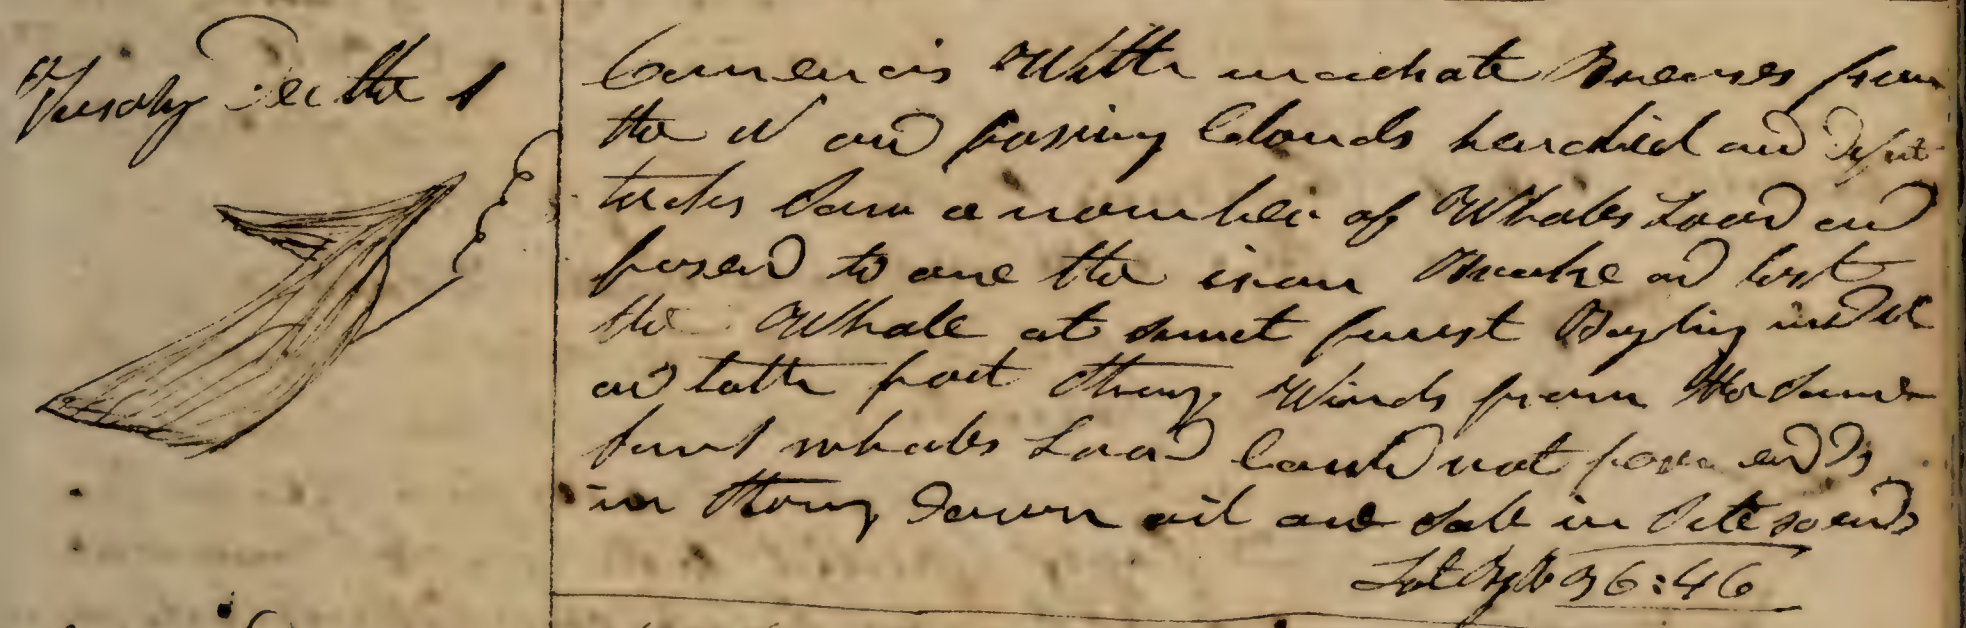 Tusday Dec the 1
Comencis With modrate Breases from
the W and passing Clouds handled and
tacks Saw a nomber of Whales Loard and
fasend to one the iron Broake and lost
the Whale at sunset furst
and latth part Strong Winds from the Same
found whales Load Could not fasen ends
in Stoing Down oil one Sale in Site so ends
Lat By Ob 36:46